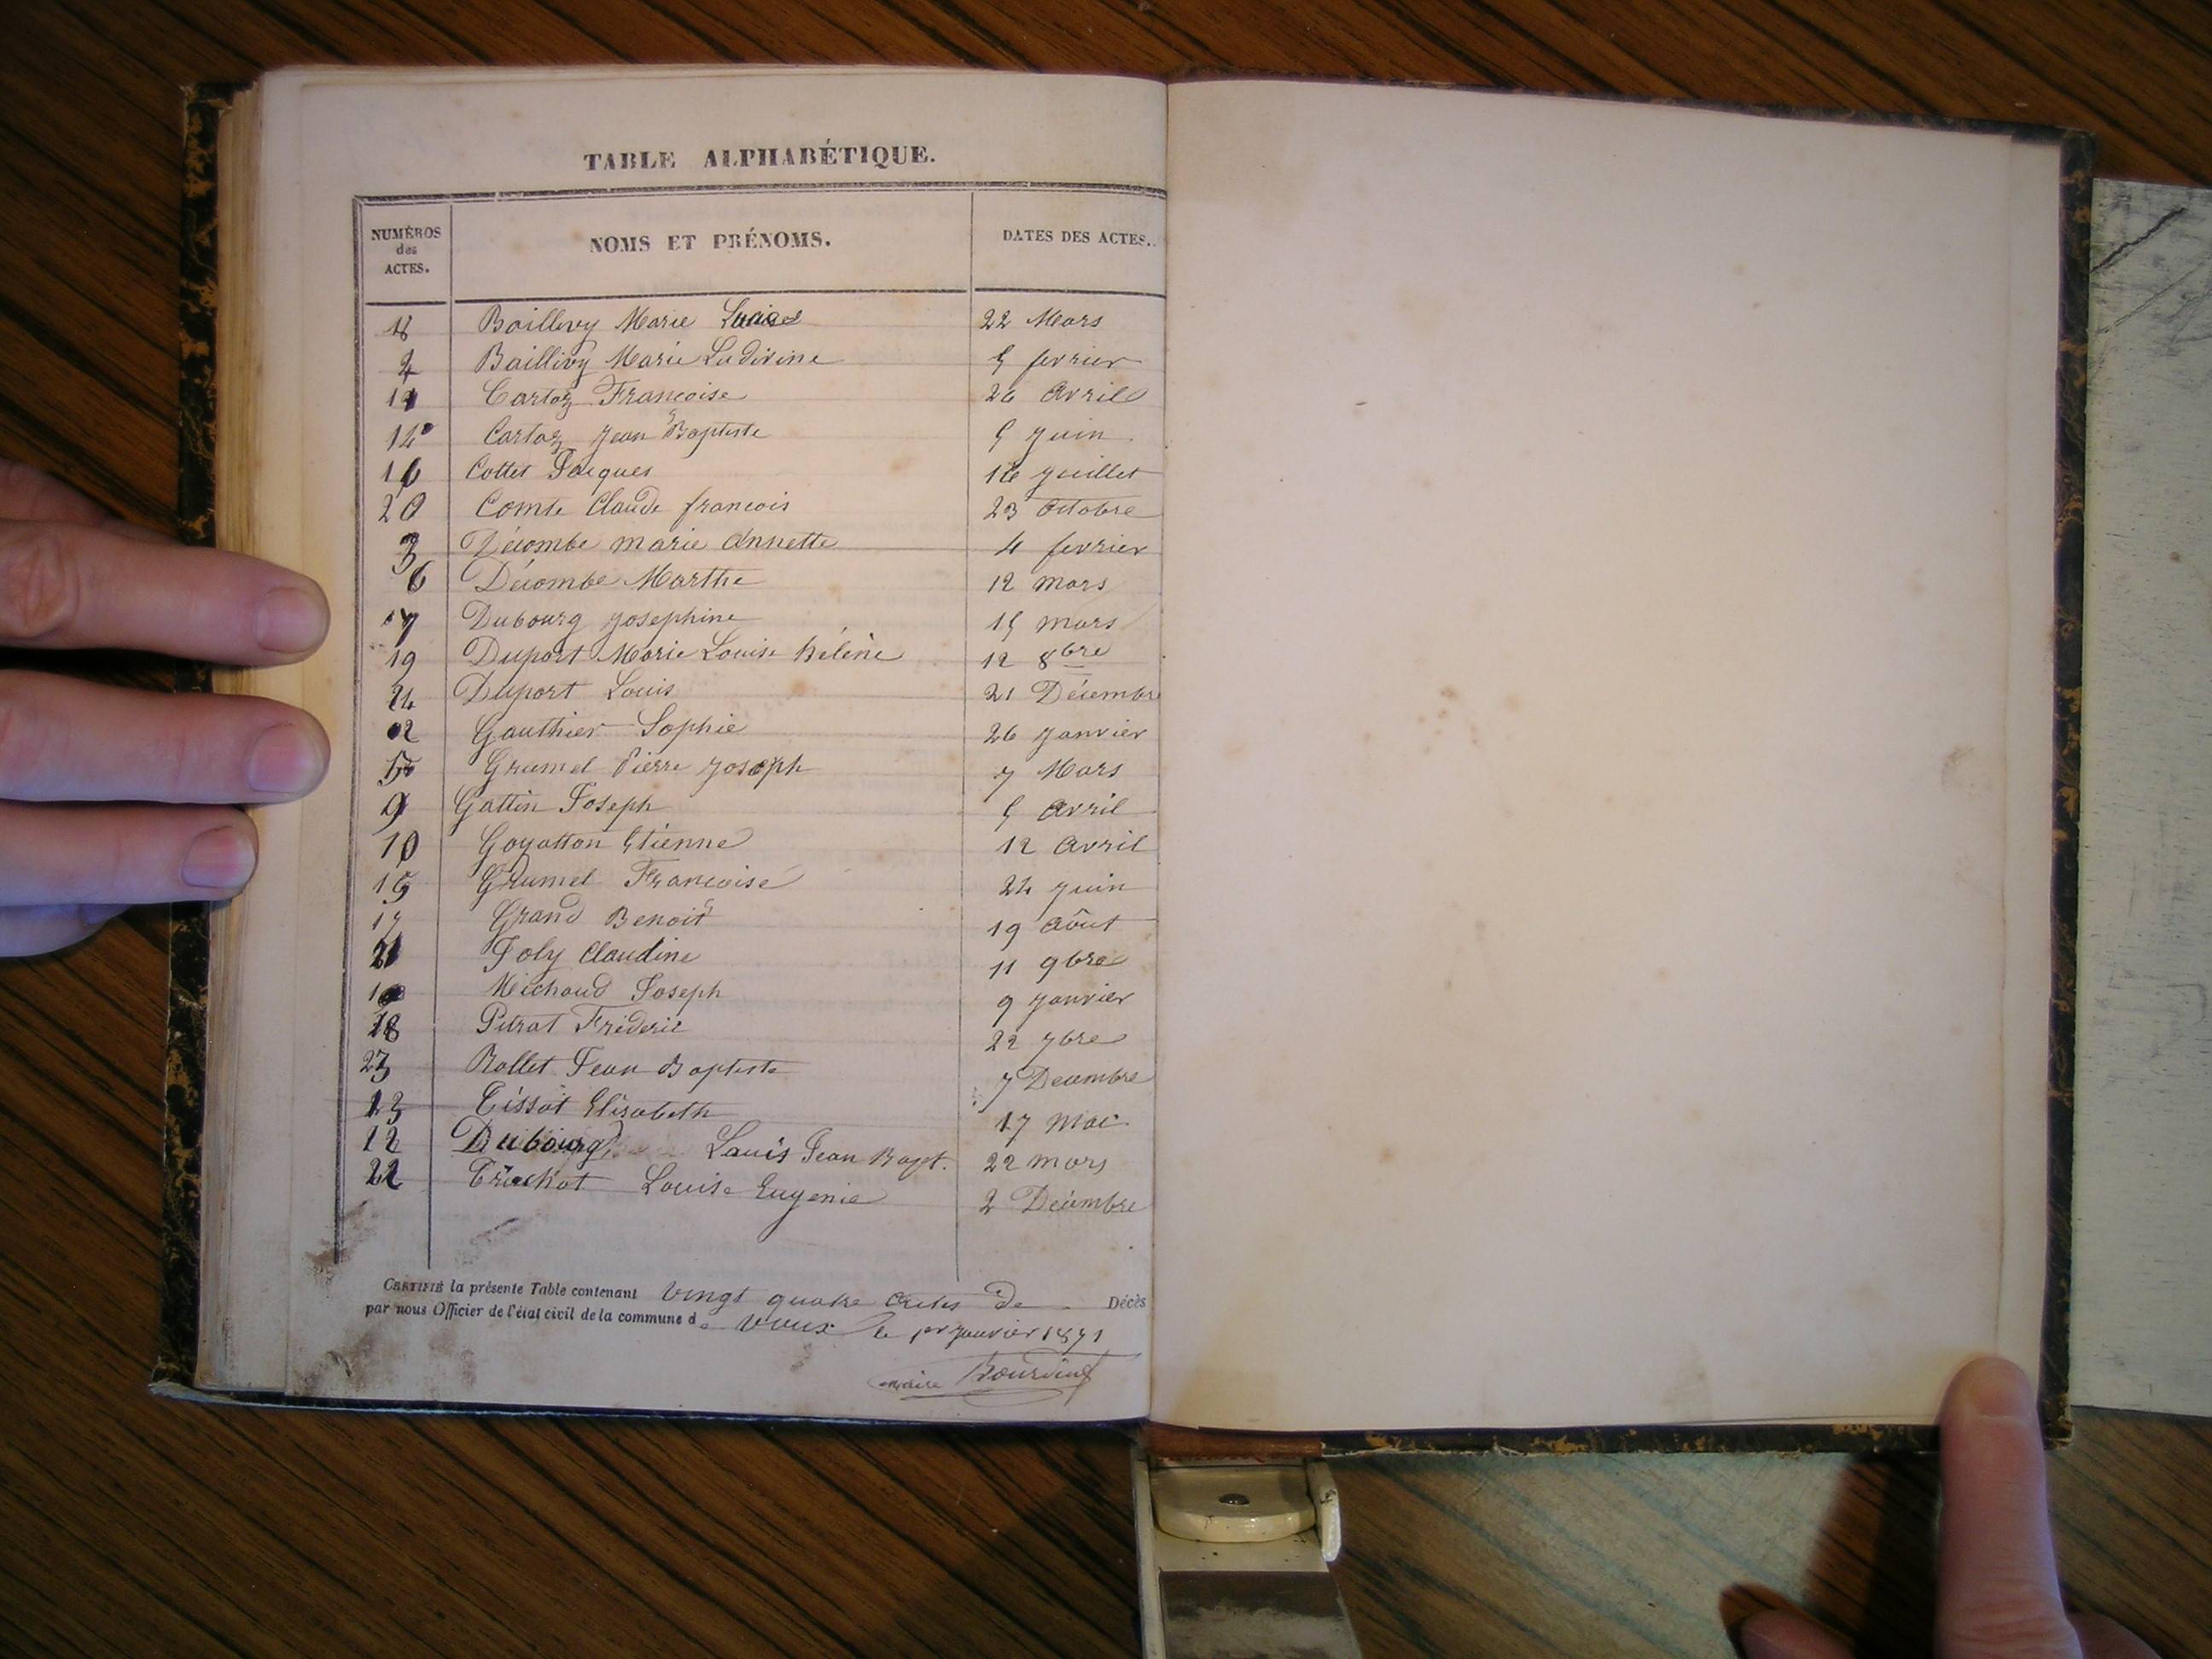 TABLE ALPHABÉTIQUE.
NUMÉROS des ACTES. NOMS ET PRÉNOMS. DATES DES ACTES.
18 Baillivy Marie 22 Mars
4 Baillivy Marie Ludivine 5 fevrier
11 Cartoz Francoise 26 Avril
14 Cartoz Jean Baptiste 5 Juin
16 Cottet Jacques 16 Juillet
20 Comte Claude francois 23 Octobre
3 Décombe marie Annette 4 fevrier
6 Décombe Marthe 12 mars
7 Dubourg Josephine 15 mars
19 Duport Marie Louise hélène 12 8bre
24 Duport Louis 21 Décembre
2 Gauthier Sophie 26 Janvier
5 Grumel Pierre Joseph 7 Mars
9 Gattin Joseph 5 Avril
10 Goyatton Etienne 12 Avril
15 Grumel Francoise 24 Juin
17 Grand Benoit 19 Aôut
21 Joly Claudine 11 9bre
1 Michaud Joseph 9 Janvier
18 Pitrat Fréderic 22 7bre
23 Rollet Jean Baptiste 7 Decembre
13 Tissot Elisabeth 17 Mai
12 Dubourg Louis Jean Bapt. 22 mars
22 Louise Eugenie 2 Décembre
CERTIFIÉ la présente Table contenant vingt quatre actes de Décès
par nous Officier de l'état civil de la commune de Vaux le 1er Janvier 1871
maire